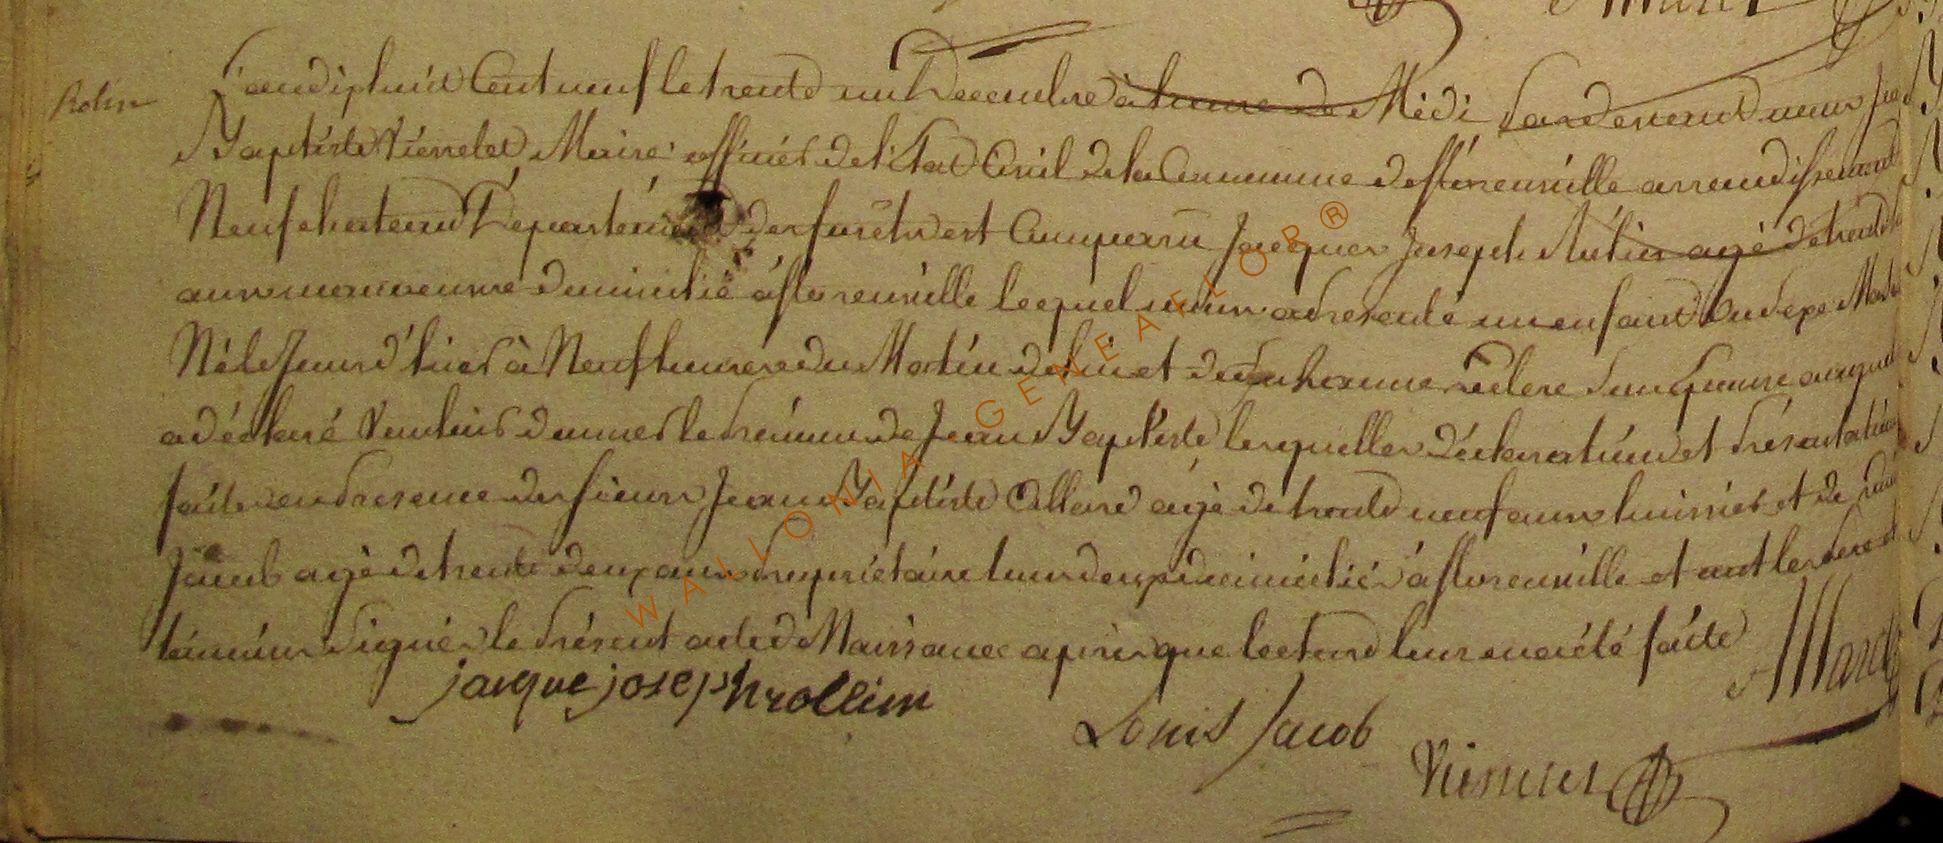 Rolin
L'an dixhuit Cent neuf le trente un Decembre à heure de Midi Pardevant nous Je
Baptiste Viersset Maire officier de l'Etat Civil de la Commune de florenville arrondissement
Neufchateau Département des forêts est Comparu Jacques Joseph Rolin agé de trente
ans manoeuvre domicilié à florenville lequel nous a presenté un enfant du sexe Masc
Né le Jour d'hier à Neuf heures du Matin de lui et de Jeanne son epouse auquel
a déclaré vouloir donner le prénom de Jean Baptiste lesquelles déclaration et présentation
faites en presence des sieurs Jean Baptiste Collard agé de trente neuf ans huissier et de
Jacob agé de trente deux ans propriétaire tous deux domiciliés à florenville et ont les pere et
témoins signés le présent acte de Naissance après que lecture leur en a été faite
jacque joseph rollin
Louis Jacob
WALLONIA GENEAFLOR®